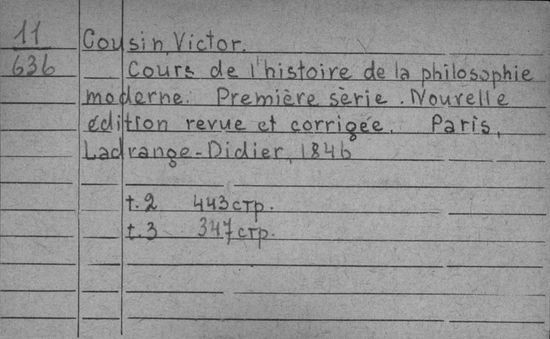 11
636
Cousin, Victor.
Cours de l'histoire de la philosophie
moderne. Première sèrie. Nouvelle
édition revue et corrigée. Paris,
Ladrange-Didier, 1846
t.2 443 стр.
t.3 347 стр.